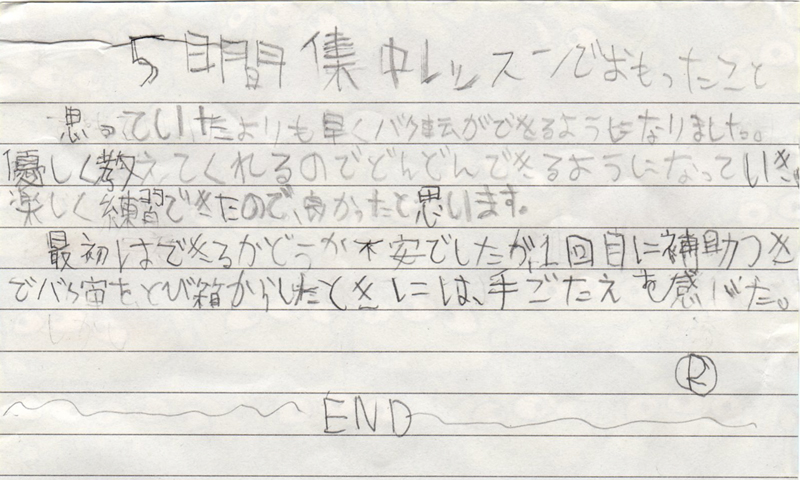 5日間集中レッスンでおもったこと
思っていたよりも早くバク転ができるようになりました。
優しく教えてくれるのでどんどんできるようになっていき、
楽しく練習できたので、良かったと思います。
最初はできるかどうか不安でしたが、1回目に補助つき
でバク宙をとび箱からしたときには、手ごたえを感じた。
R
END